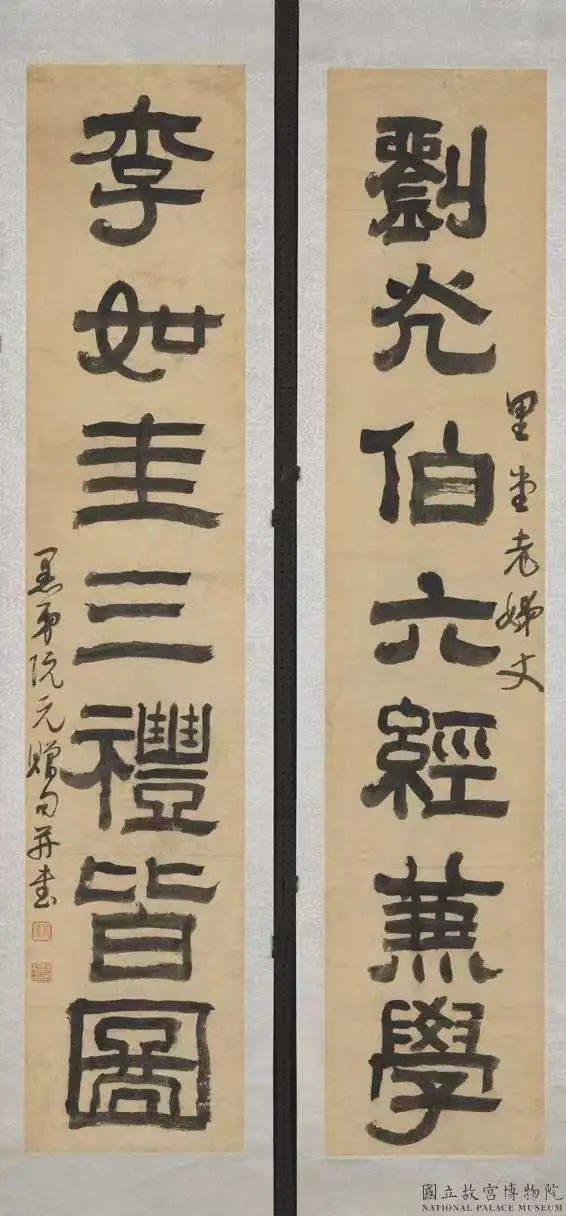 劉光伯六經兼學
里堂老姊丈
李如圭三禮皆圖
愚弟阮元贈句并書
國立故宮博物院
NATIONAL PALACE MUSEUM